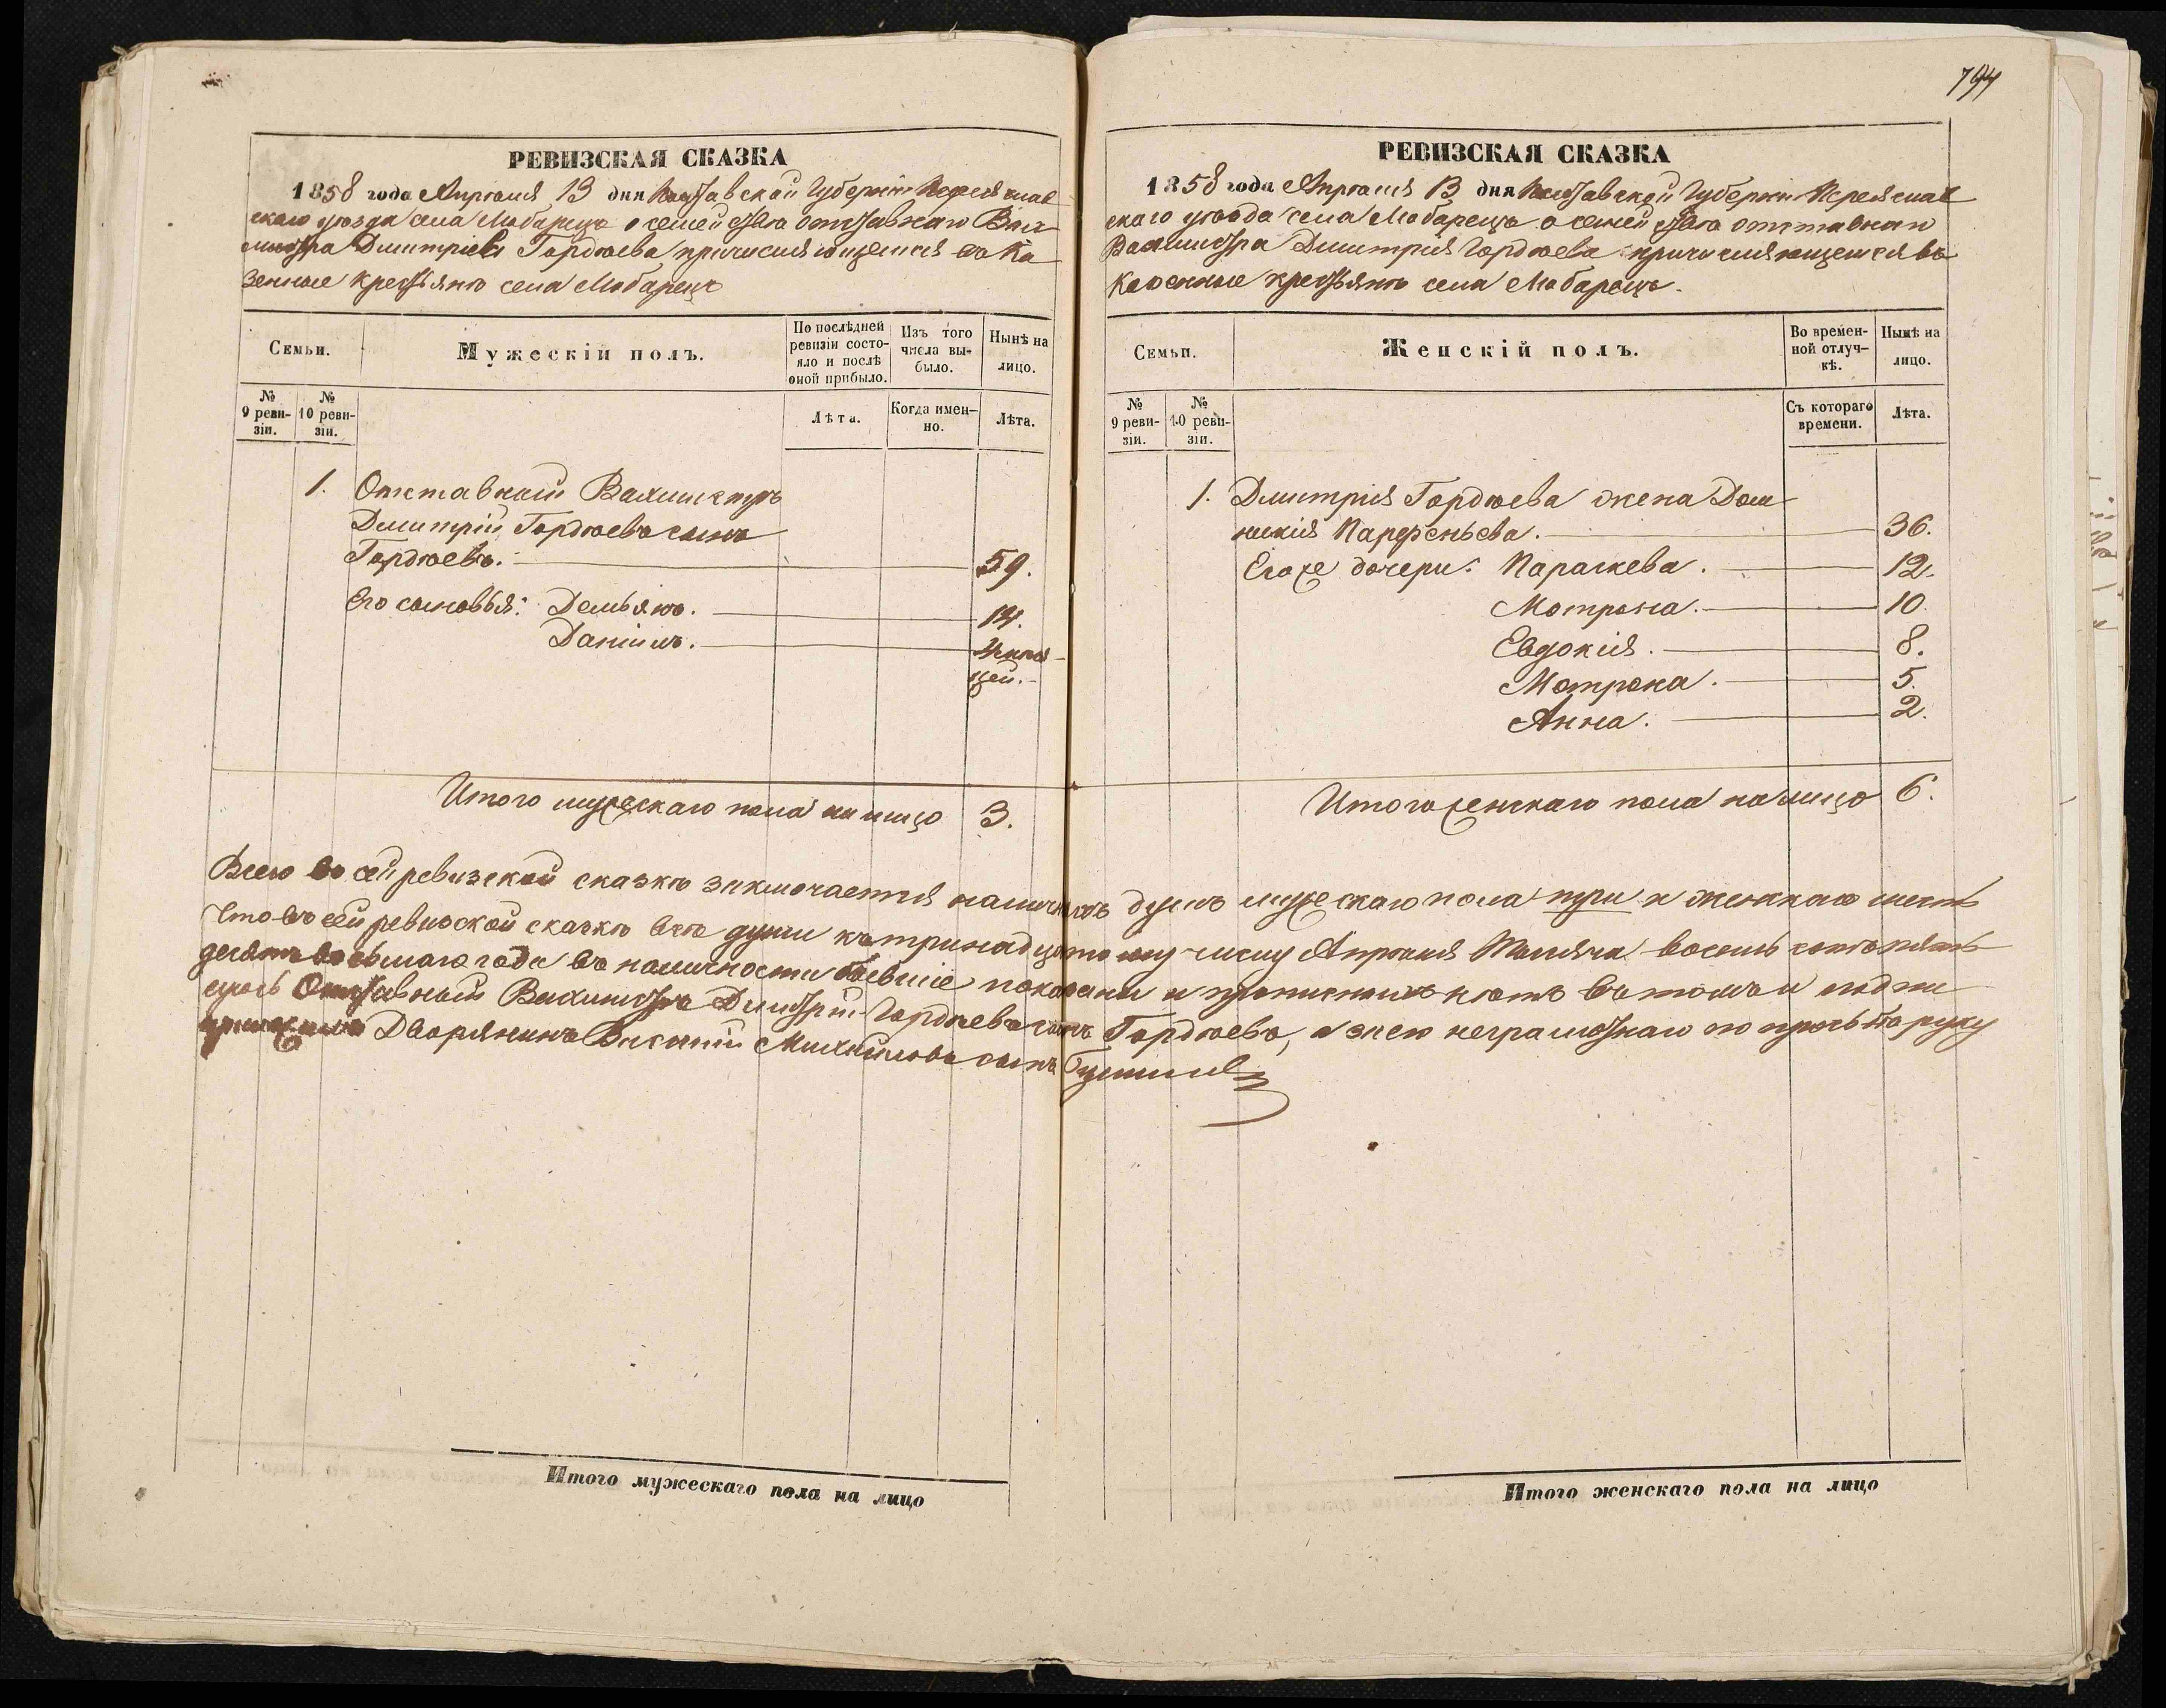 794
РЕВИЗСКАЯ СКАЗКА
1858 года Апрѣля 13 дня Полтавской Губерніи Переяслав-
скаго уѣзда села Мабарещъ о семействѣ отставнаго Вах-
мистра Дмитрія Гордѣева причисляющемся въ Ка
зенные крестьянѣ села Мабарещъ
Семьи.
Мужескій полъ.
По послѣдней ревизіи состо-
яло и послѣ оной прибыло.
Изъ того числа вы-
было.
Нынѣ на лицо.
№ 9 реви-
зіи.
№ 10 реви-
зіи.
Лѣта.
Когда имен-
но.
Лѣта.
1. Отставный Вахмистръ
Дмитрій Гордѣевъ сынъ
Гордѣевъ. 59.
Его сыновья: Демьянъ. 14.
Даніилъ.
Итого мужескаго пола на лицо 3.
РЕВИЗСКАЯ СКАЗКА
1858 года Апрѣля 13 дня Полтавской Губерніи Переяслав
скаго уѣзда села Мабарещъ о семействѣ отставнаго
Вахмистра Дмитрія Гордѣева причисляющемся въ
Казенные крестьянѣ села Мабарещъ.
Семьи.
Женскій полъ.
Во времен-
ной отлуч-
кѣ.
Нынѣ на лицо.
№ 9 реви-
зіи.
№ 10 реви-
зіи.
Съ котораго времени.
Лѣта.
1. Дмитрія Гордѣева жена Дом
никія Парфеньева. 36.
Его же дочери: Параскева. 12.
Мотрона. 10.
Евдокія. 8.
Мотрона. 5.
Анна. 2.
Итого женскаго пола на лицо 6.
Всего въ сей ревизской сказкѣ заключается наличныхъ душъ мужескаго пола три и женскаго шесть
Что въ сей ревизской сказкѣ всѣ души къ тринадцатому числу Апрѣля Тысяча восемь сотъ пять
десятъ восьмаго года въ наличности бывшіе показаны и прописныхъ нѣтъ въ томъ и подпи
уюсь Отставный Вахмистръ Дмитрій Гордѣевъ сынъ Гордѣевъ, а за него неграмотнаго по просьбѣ руку
приложилъ Дворянинъ Василій Михайловъ сынъ
Итого мужескаго пола на лицо
Итого женскаго пола на лицо